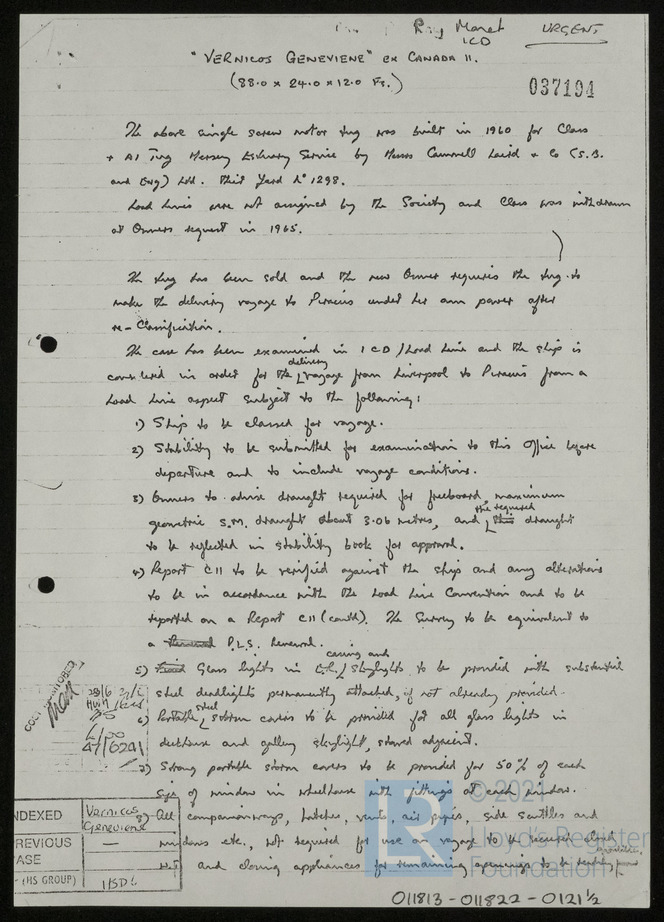 Roy Manet URGENT
ICD
"VERNICOS GENEVIENE" ex CANADA II.
(88.0 x 24.0 x 12.0 Ft.)
037194
The above single screw motor tug was built in 1960 for Class
+ A1 Tug Mersey Estuary Service by Messrs Cammell Laird & Co (S.B.
and Eng) Ltd. their Yard No 1298.
Load Lines were not assigned by the Society and Class was withdrawn
at Owners request in 1965.
The tug has been sold and the new Owner requires the tug to
make the delivery voyage to Piraeus under her own power after
re-Classification.
The case has been examined in ICD/Load Line and the ship is
considered in order for the delivery voyage from Liverpool to Piraeus from a
Load Line aspect subject to the following:
1) Ship to be classed for voyage.
2) Stability to be submitted for examination to this Office before
departure and to include voyage conditions.
3) Owners to advise draught required for freeboard, maximum
geometric S.M. draught about 3.06 metres, and the required draught
to be reflected in stability book for approval.
4) Report C11 to be verified against the ship and any alterations
to be in accordance with the Load Line Convention and to be
reported on a Report C11 (contd). The Survey to be equivalent to
a P.L.S. Renewal.
5) Glass lights in casing and skylights to be provided with substantial
steel deadlights permanently attached, if not already provided.
6) Portable steel storm covers to be provided for all glass lights in
deckhouse and galley skylight, stowed adjacent.
7) Strong portable storm covers to be provided for 50% of each
size of window in wheelhouse with fittings at each window.
8) All companionways, hatches, vents, air pipes, side scuttles and
windows etc., not required for use on voyage to be secured closed
W.T. and closing appliances for remaining openings to be
COLL MONITORED
47/6241
INDEXED Vernicos Geneviene
PREVIOUS CASE —
(HS GROUP) HSDL
© 2021
Lloyd's Register
Foundation
LR
011813-011822-0121½